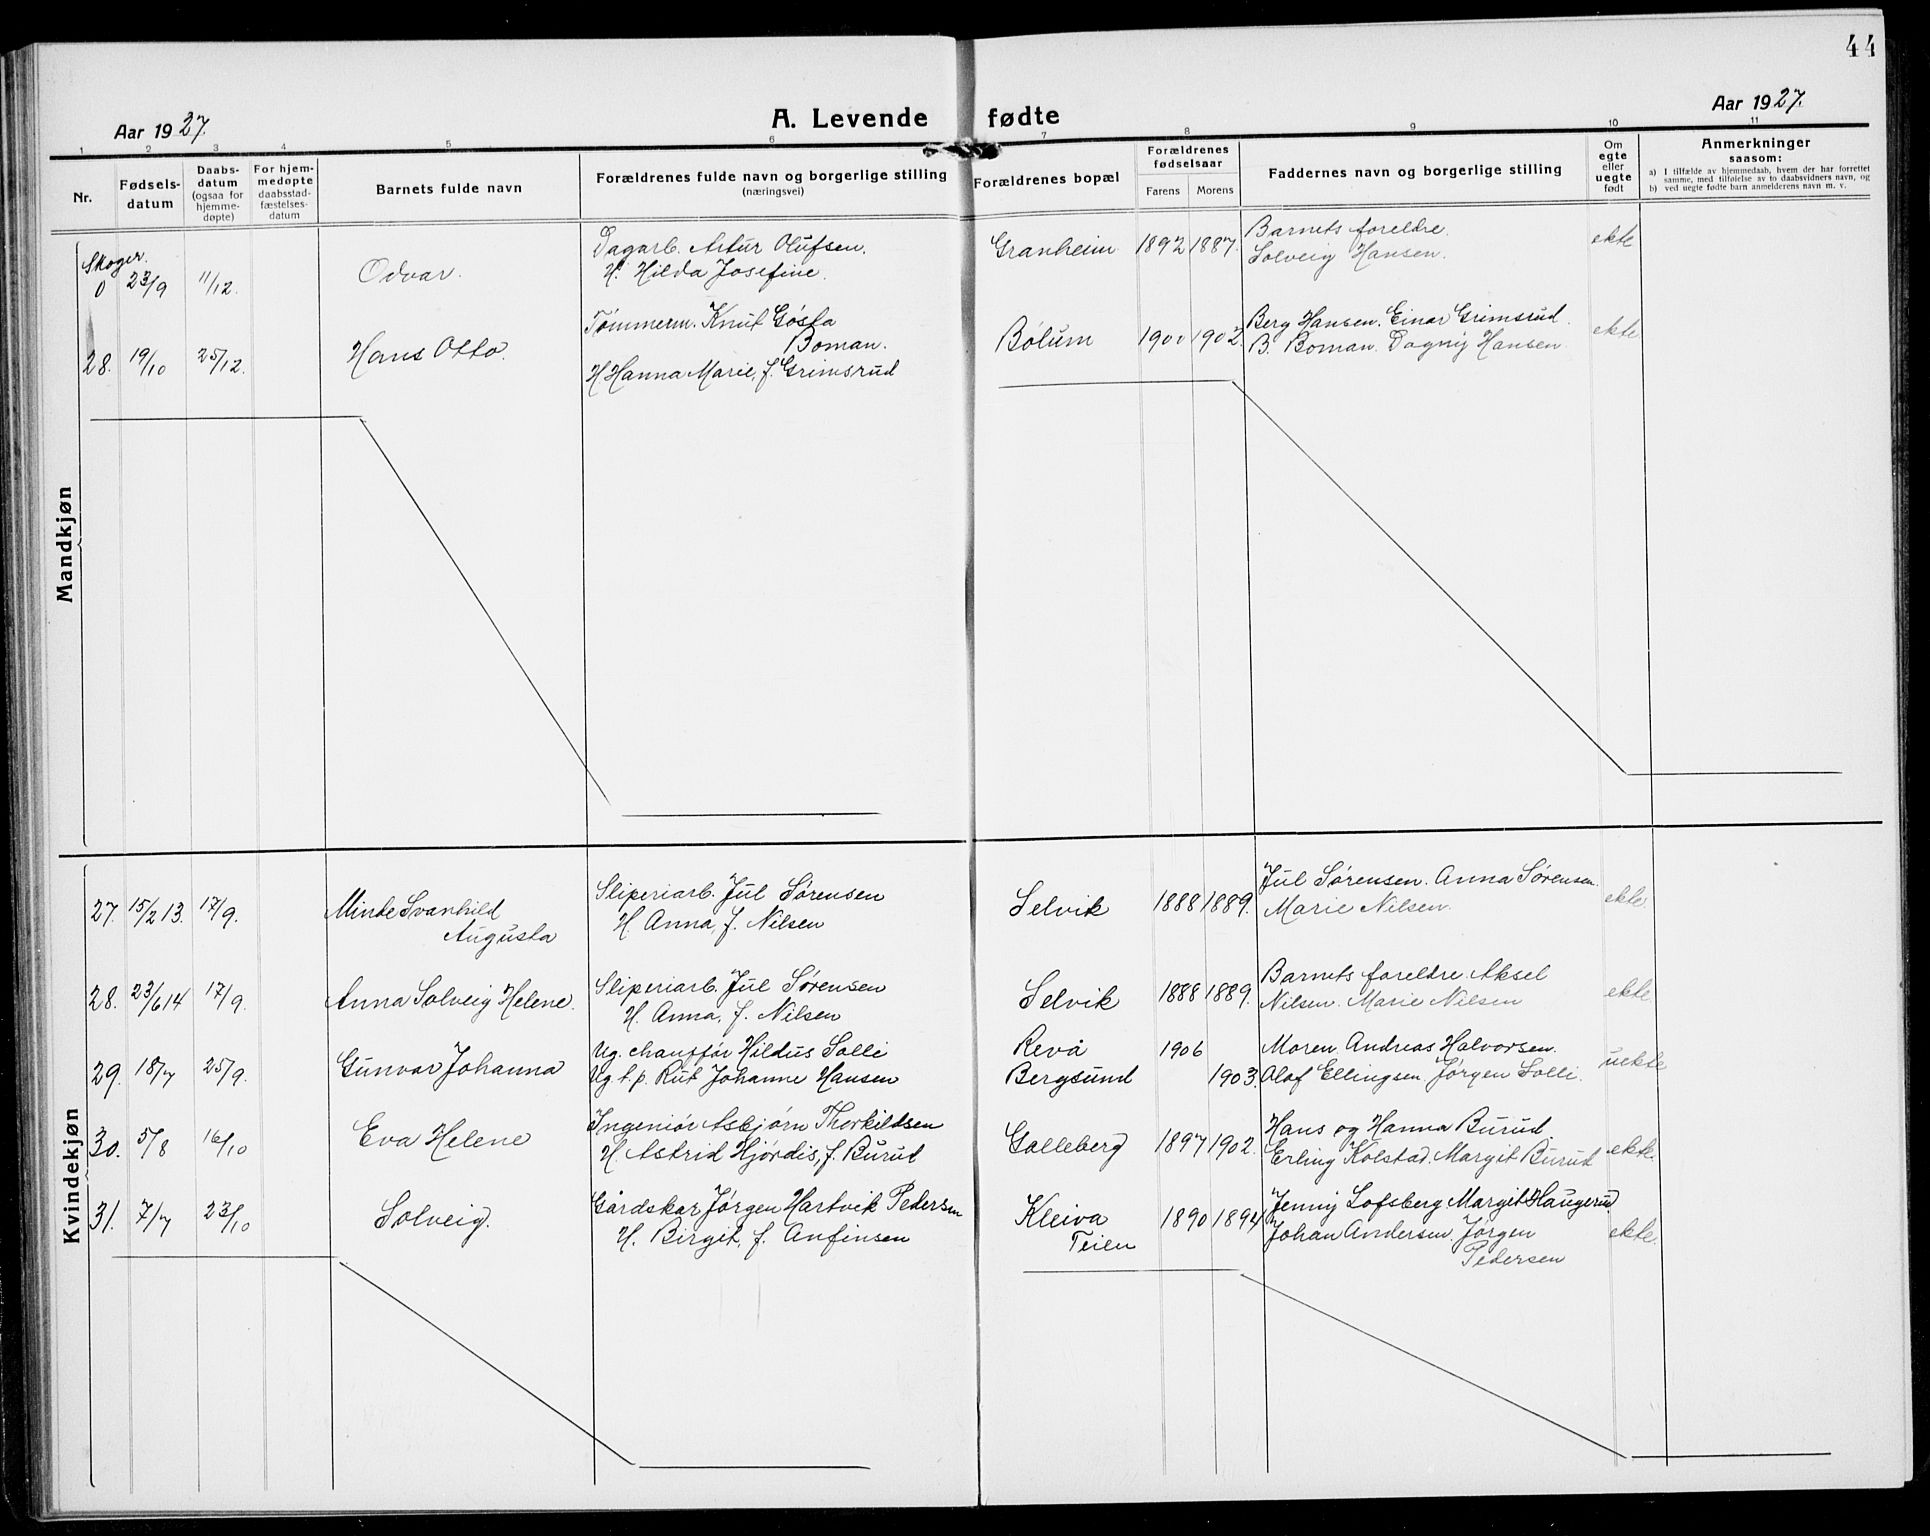 44
Aar 1927.
A. Levende fødte
Aar 1927.
1 2 3 4 5 6 7 8 9 10 11
Nr.
Fødsels-
datum
Daabs-
datum
(ogsaa for
hjemme-
døpte)
For hjem-
medøpte
daabsstad-
fæstelses-
datum
Barnets fulde navn
Forældrenes fulde navn og borgerlige stilling
(næringsvei)
Forældrenes bopæl
Forældrenes
fødselsaar
Farens Morens
Faddernes navn og borgerlige stilling
Om
egte
eller
uegte
født
Anmerkninger
saasom:
a) I tilfælde av hjemmedaab, hvem der har forrettet
samme, med tilføielse av to daabsvidners navn, og
b) ved uegte fødte barn anmelderens navn m. v.
Mandkjøn
Skoger
0 23/9 11/12. Odvar.
Dagarb. Artur Olufsen.
H. Hilda Josefine.
Granheim 1892 1887.
Barnets foreldre.
Solveig Hansen.
ekte
28. 19/10 25/12. Hans Otto.
Tømmerm. Knut Gøsta
Boman.
H Hanna Marie, f. Grimsrud
Bolum 1900 1902.
Berg Hansen. Einar Grimsrud.
B. Boman. Dagny Hansen
ekte
Kvindekjøn
27. 15/2 13. 17/9. Minde Svanhild
Augusta
Sliperiarb. Jul Sørensen
H. Anna, f. Nilsen
Selvik 1888 1889.
Jul Sørensen. Anna Sørensen.
Marie Nilsen.
ekte.
28. 23/6 14 17/9. Anna Solveig Helene.
Sliperiarb. Jul Sørensen
H. Anna, f. Nilsen
Selvik 1888 1889.
Barnets foreldre. Aksel
Nilsen. Marie Nilsen
ekte.
29. 18/7 25/9. Gunvor Johanna
Ug. chauffør Hildus Solli
Ug. t.p. Rut Johanne Hansen
Revå 1906
Bergsund 1903.
Moren. Andreas Halvorsen.
Olaf Ellingsen. Jørgen Solli.
uekte
30. 5/8 16/10 Eva Helene
Ingeniør Asbjørn Thorkildsen
H. Astrid Hjørdis, f. Burud
Galleberg 1897 1902.
Hans og Hanna Burud
Erling Kolstad. Margit Burud
ekte.
31. 7/7 23/10 Solveig.
Gårdskar Jørgen Hartvik Pedersen
H. Birgit, f. Anfinsen
Kleiva
Teien
1890 1894
Jenny Lofsberg Margit Haugerud
Johan Andersen. Jørgen
Pedersen
ekte.